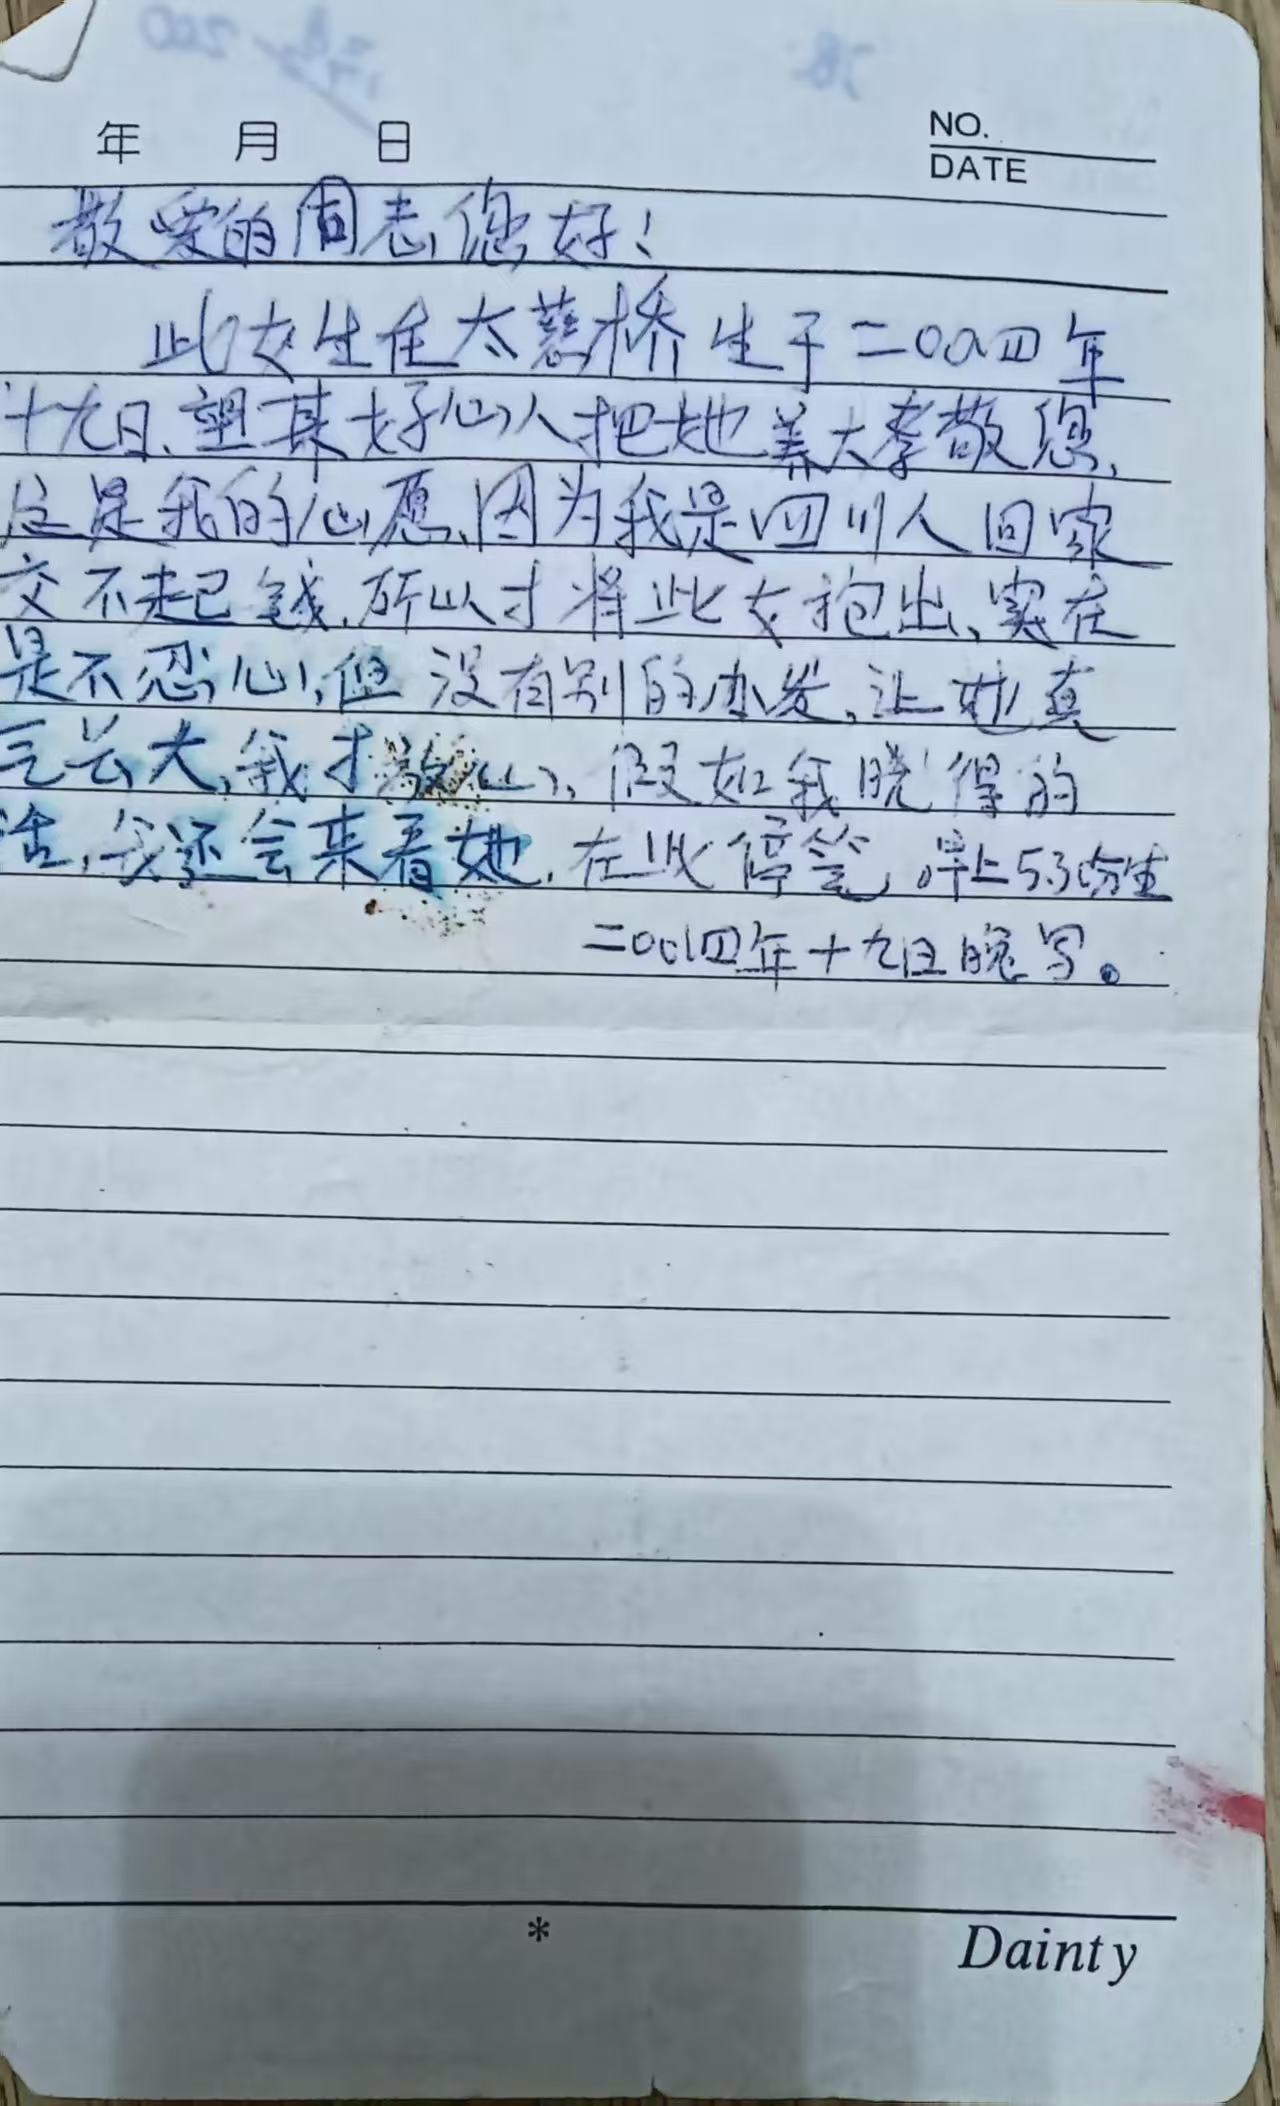 年 月 日
NO.
DATE
敬爱的同志您好!
此女生在太慈桥生于二00四年
十九日、望某好心人把她养大孝敬您、
这是我的心愿、因为我是四川人回家
交不起钱、所以才将此女抱出、实在
是不忍心、但没有别的办发、让她真
长大、我才放心、假如我晓得的
话、我还会来看她、在此停笔, 早上5.30分生
二00四年十九日晚写。
*
Dainty